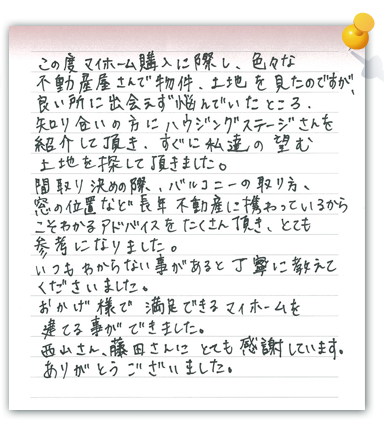 この度マイホーム購入に際し、色々な
不動産屋さんで物件、土地を見たのですが、
良い所に出会えず悩んでいたところ、
知り合いの方にハウジングステージさんを
紹介して頂き、すぐに私達の望む
土地を探して頂きました。
間取り決めの際、バルコニーの取り方、
窓の位置など長年不動産に携わっているから
こそわかるアドバイスをたくさん頂き、とても
参考になりました。
いつもわからない事があると丁寧に教えて
くださいました。
おかげ様で満足できるマイホームを
建てる事ができました。
西山さん、藤田さんにとても感謝しています。
ありがとうございました。